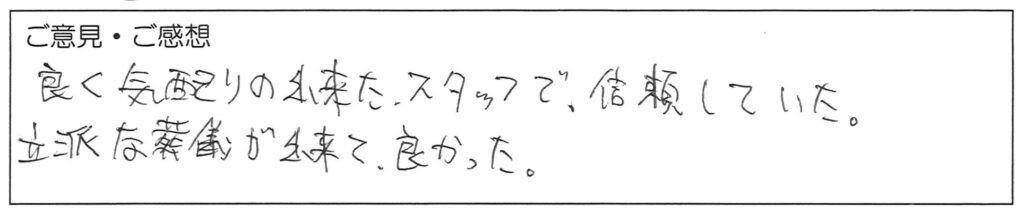 ご意見・ご感想
良く気配りの出来た、スタッフで、信頼していた。
立派な葬儀が出来て、良かった。